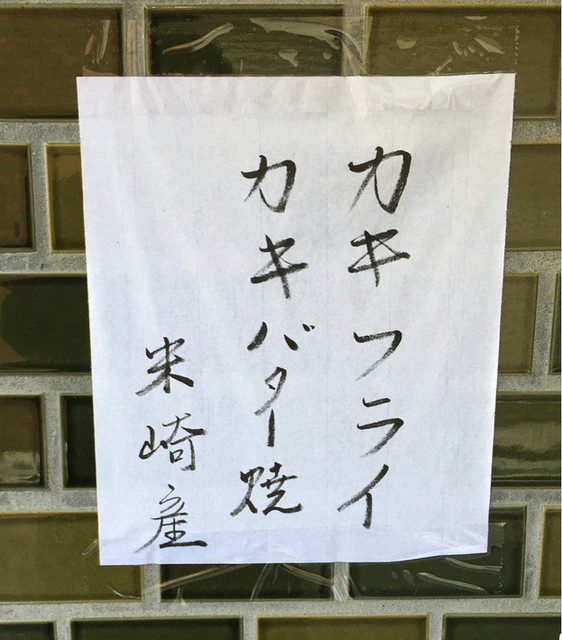 カキフライ
カキバター焼
米崎産